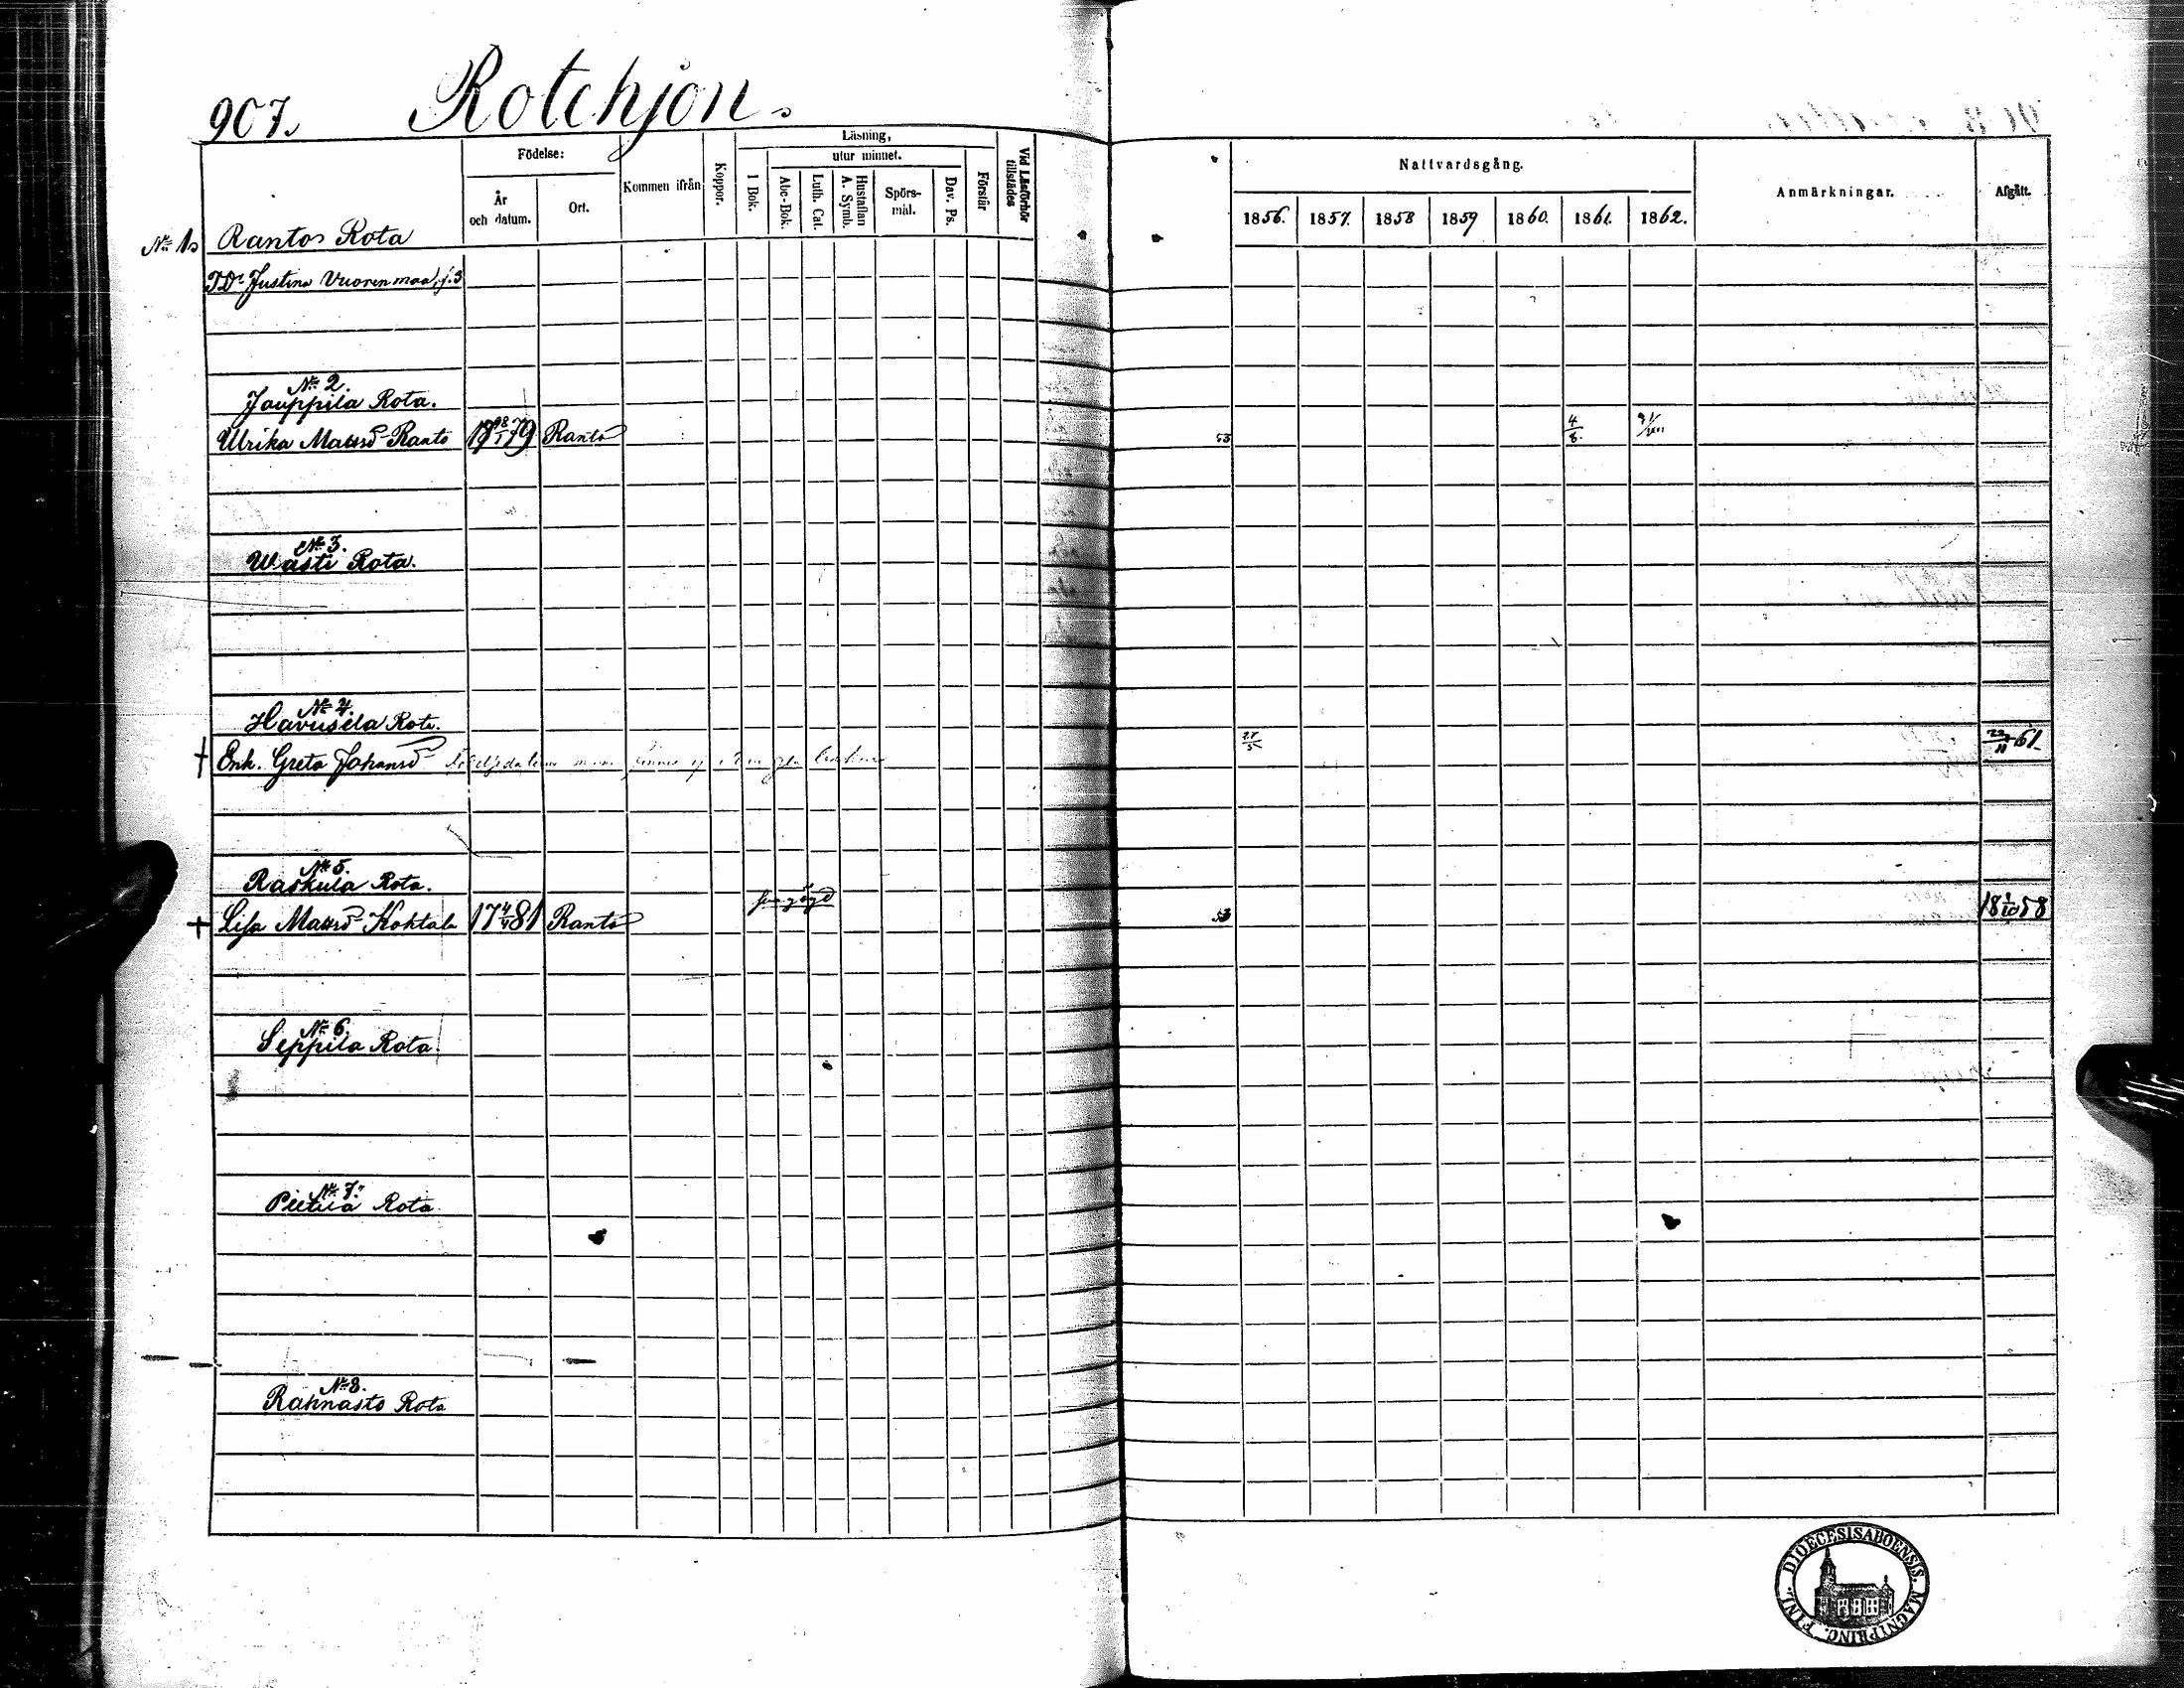 907. Rotehjon.
Födelse:
År och datum.
Ort.
Kommen ifrån
Koppor.
Läsning,
utur minnet.
I Bok.
Abc-Bok.
Luth. Cat.
Hustaflan A. Symb.
Spörs-mål.
Dav. Ps.
Förstår
Vid Läsförhör tillstädes
Nattvardsgång.
1856. 1857. 1858 1859 1860. 1861. 1862.
Anmärkningar.
Afgått.
No 1. Rantos Rota
TDr Justina Vuorenmaa, f. 3
No 2.
Jauppila Rota.
Ulrika Matsd Ranto 17 18/1 79 Ranto 53 4/8.
No 3.
Wasti Rota.
No 4.
Havusela Rote.
† Enk. Greta Johansd 22/11 61.
No 5.
Raskula Rota.
† Lisa Matsd Kohtala 17 4/4 81 Ranto 53 18 1/10 58
No 6.
Seppila Rota.
No 7.
Pietila Rota.
No 8.
Rahnasto Rota
DIOECESIS ABOENSIS. MAGNI PRINC. FINL.